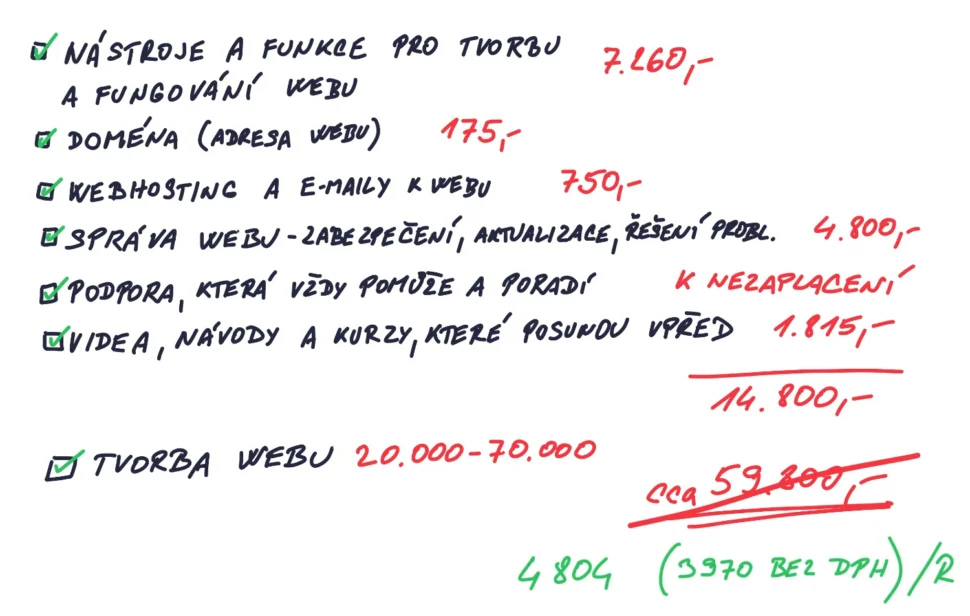 NÁSTROJE A FUNKCE PRO TVORBU 7.260,-
A FUNGOVÁNÍ WEBU
DOMÉNA (ADRESA WEBU) 175,-
WEBHOSTING A E-MAILY K WEBU 750,-
SPRÁVA WEBU - ZABEZPEČENÍ, AKTUALIZACE, ŘEŠENÍ PROBL. 4.800,-
PODPORA, KTERÁ VŽDY POMŮŽE A PORADÍ K NEZAPLACENÍ
VIDEA, NÁVODY A KURZY, KTERÉ POSUNOU VPŘED 1.815,-
14.800,-
TVORBA WEBU 20.000-70.000
cca 59.800,-
4804 (3970 BEZ DPH)/R